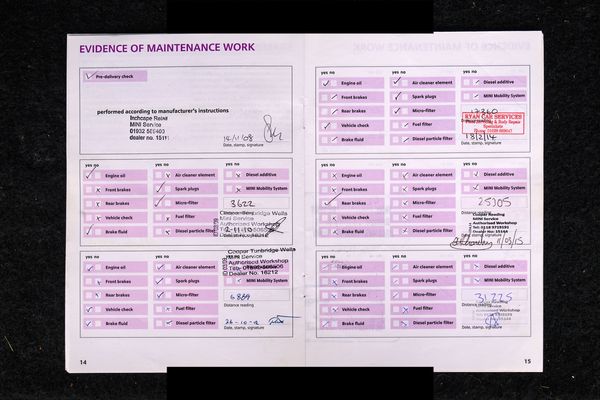 EVIDENCE OF MAINTENANCE WORK
Pre-delivery check
performed according to manufacturer's instructions
MINI Service
dealer no.
14/11/08
Date, stamp, signature
yes no
Engine oil
Front brakes
Rear brakes
Vehicle check
Brake fluid
Air cleaner element
Spark plugs
Micro-filter
Fuel filter
Diesel particle filter
Diesel additive
MINI Mobility System
3622
Cooper Tunbridge Wells
Mini Service
Authorised Workshop
2-11-10
yes no
Engine oil
Front brakes
Rear brakes
Vehicle check
Brake fluid
Air cleaner element
Spark plugs
Micro-filter
Fuel filter
Diesel particle filter
Cooper Tunbridge Wells
MINI Service
Authorised Workshop
Dealer No. 16212
6889
Distance reading
26-10-12
Date, stamp, signature
14
yes no
yes no
yes no
Engine oil
Front brakes
Rear brakes
Vehicle check
Brake fluid
Air cleaner element
Spark plugs
Micro-filter
Fuel filter
Diesel particle filter
Diesel additive
MINI Mobility System
17360
RYAN CAR SERVICES
18/2/14
Date, stamp, signature
yes no
yes no
yes no
Engine oil
Front brakes
Rear brakes
Vehicle check
Brake fluid
Air cleaner element
Spark plugs
Micro-filter
Fuel filter
Diesel particle filter
Diesel additive
MINI Mobility System
25305
Cooper Reading
MINI Service
Authorised Workshop
11/03/15
yes no
yes no
yes no
Engine oil
Front brakes
Rear brakes
Vehicle check
Brake fluid
Air cleaner element
Spark plugs
Micro-filter
Fuel filter
Diesel particle filter
Diesel additive
MINI Mobility System
31225
Date, stamp, signature
15